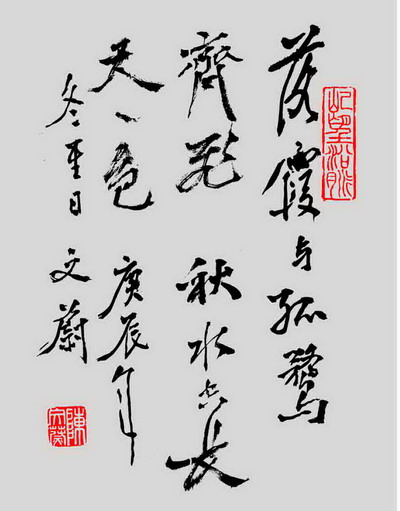 落霞与孤鶩
齊飛 秋水共长
天一色 庚辰年
冬至日 文蔚
陳文蔚